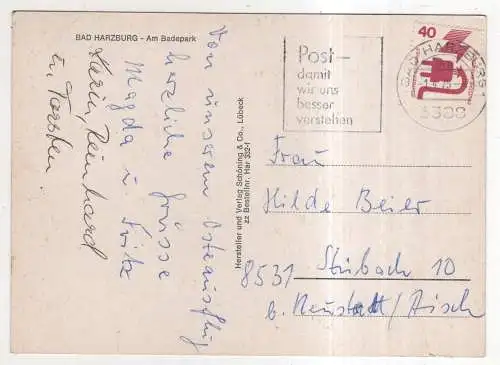 BAD HARZBURG - Am Badepark
Von unserem Osterausflug
herzliche Grüsse
Magda u Fritz
Karin, Reinhard
u. Torsten.
Hersteller und Verlag Schöning & Co., Lübeck
zz Bestellnr. Har 332-1
Post-
damit
wir uns
besser
verstehen
40
BAD HARZBURG 1
3388
Frau
Hilde Beier
8531 Stübach 10
b. Neustadt/Aisch